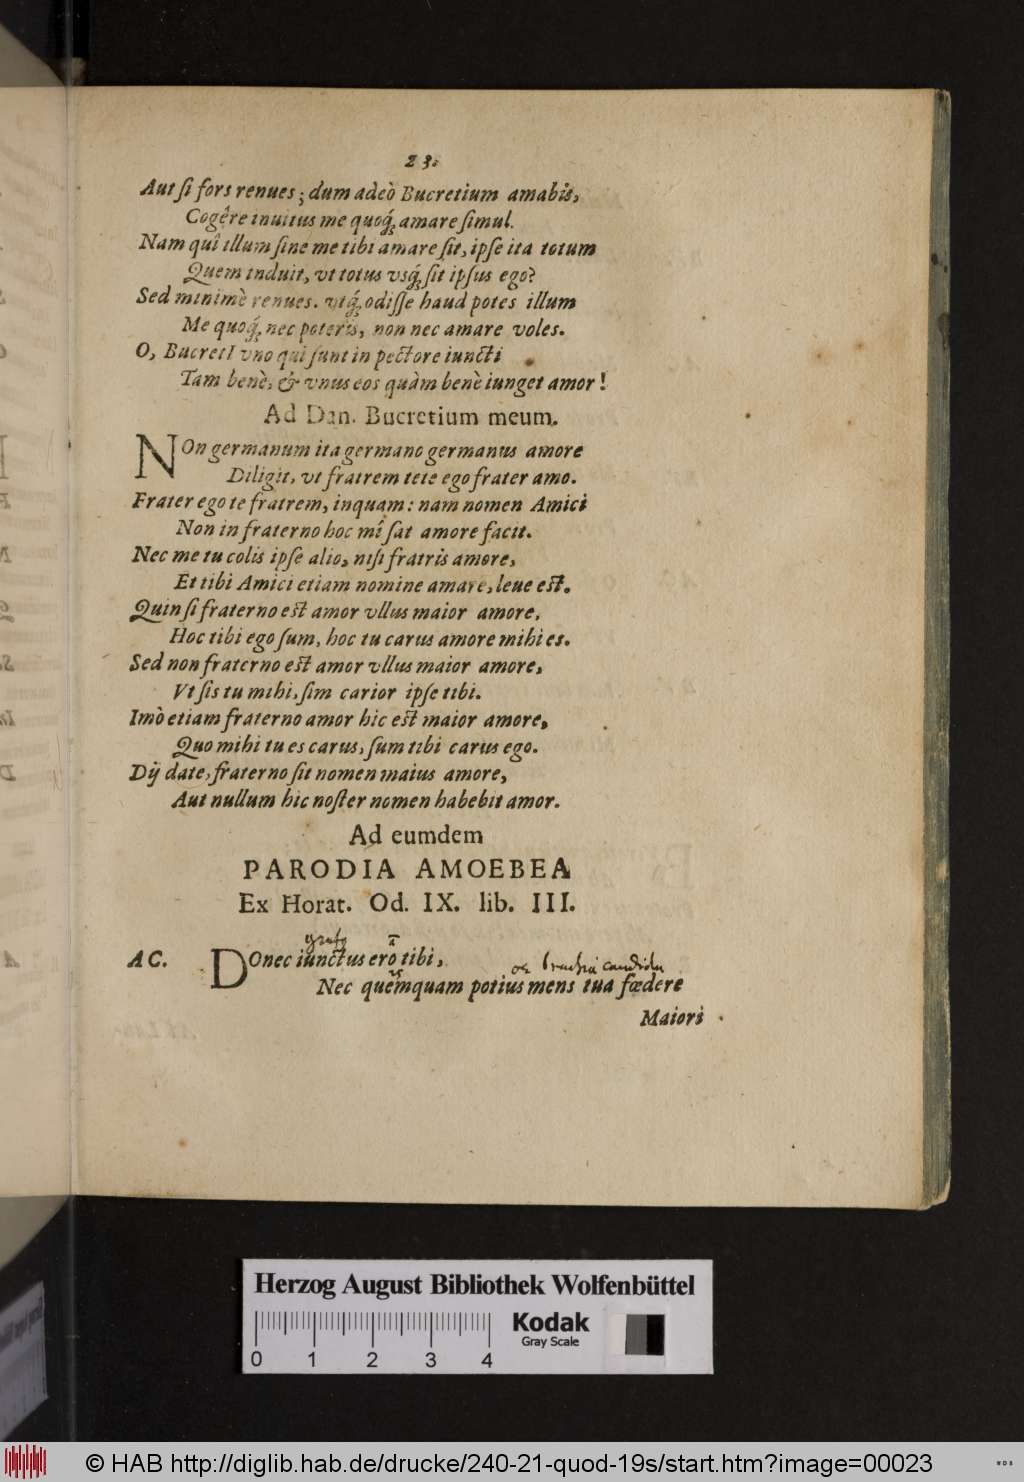 23.
Aut ſi fors renues; dum adeò Bucretium amabis,
Cogêre inuitus me quoq́; amare ſimul.
Nam quî illum ſine me tibi amare ſit, ipſe ita totum
Quem induit, vt totus vsq́; ſit ipſus ego?
Sed minimè renues. vtq́; odiſſe haud potes illum
Me quoq́; nec poteris, non nec amare voles.
O, BucretI vno qui ſunt in pectore iuncti
Tam benè, & vnus eos quàm benè iunget amor!
Ad Dan. Bucretium meum.
NOn germanum ita germano germanus amore
Diligit, vt fratrem tete ego frater amo.
Frater ego te fratrem, inquam: nam nomen Amici
Non in fraterno hoc mî ſat amore facit.
Nec me tu colis ipſe alio, niſi fratris amore,
Et tibi Amici etiam nomine amare, leue eſt.
Quin ſi fraterno eſt amor vllus maior amore,
Hoc tibi ego ſum, hoc tu carus amore mihi es.
Sed non fraterno eſt amor vllus maior amore,
Vt ſis tu mihi, ſim carior ipſe tibi.
Imò etiam fraterno amor hic eſt maior amore,
Quo mihi tu es carus, ſum tibi carus ego.
Dij date, fraterno ſit nomen maius amore,
Aut nullum hic noſter nomen habebit amor.
Ad eumdem
PARODIA AMOEBEA
Ex Horat. Od. IX. lib. III.
AC. DOnec iunctus ero tibi,
brachia candida
Nec quemquam potius mens tua fœdere
Maiori
Herzog August Bibliothek Wolfenbüttel
Kodak
Gray Scale
0 1 2 3 4
© HAB http://diglib.hab.de/drucke/240-21-quod-19s/start.htm?image=00023